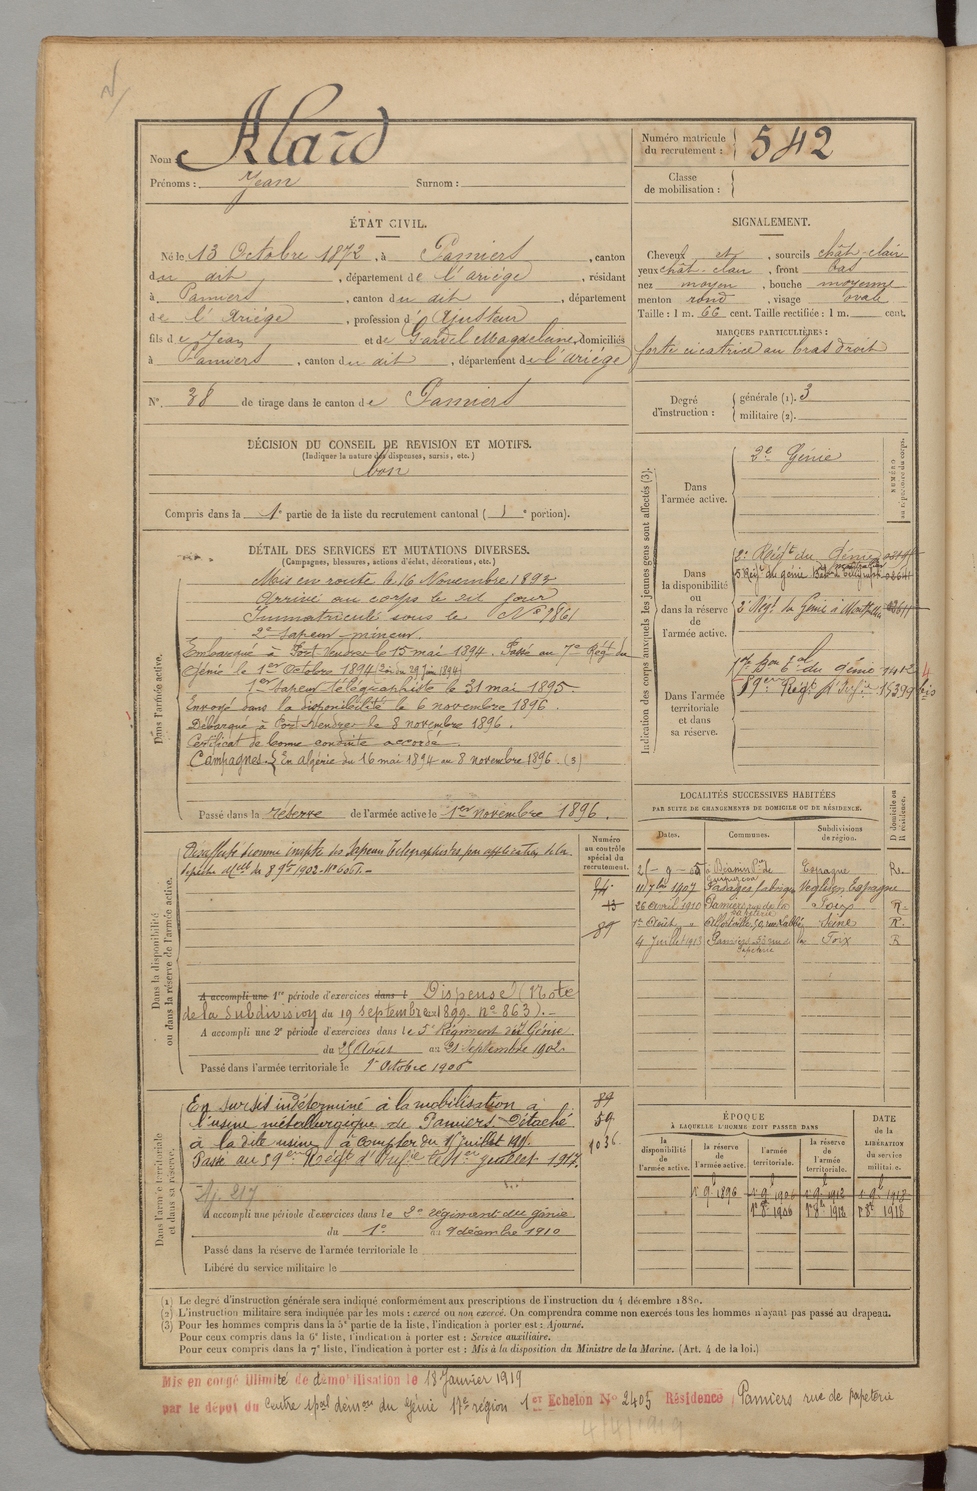 Nom : Alard
Prénoms : Jean Surnom :
Numéro matricule du recrutement : 542
Classe de mobilisation :
ÉTAT CIVIL.
Né le 13 Octobre 1872, à Pamiers, canton
du dit, département de l'ariège, résidant
à Pamiers, canton du dit, département
de l'Ariège, profession d'Ajusteur
fils de Jean et de Gardel Magdelaine, domiciliés
à Pamiers, canton du dit, département de l'ariége
N° 38 de tirage dans le canton de Pamiers
SIGNALEMENT.
Cheveux et, sourcils chât-clair
yeux chât-clair, front bas
nez moyen, bouche moyenne
menton rond, visage ovale
Taille : 1 m. 66 cent. Taille rectifiée : 1 m. cent.
MARQUES PARTICULIÈRES :
forte cicatrice au bras droit
Degré d'instruction : générale (1). 3
militaire (2).
DÉCISION DU CONSEIL DE REVISION ET MOTIFS.
(Indiquer la nature des dispenses, sursis, etc.)
bon
Compris dans la 1e partie de la liste du recrutement cantonal ( 1e portion).
DÉTAIL DES SERVICES ET MUTATIONS DIVERSES.
(Campagnes, blessures, actions d'éclat, décorations, etc.)
Dans l'armée active.
Mis en route le 16 Novembre 1893
Arrivé au corps le dit jour
Immatriculé sous le N° 9861
2e sapeur-mineur.
Embarqué à Port Vendres le 15 mai 1894. Passé au 7e Régt du
Génie le 1er Octobre 1894 (Don du 29 juin 1894)
1er sapeur télégraphiste le 31 mai 1895
Envoyé dans la disponibilité le 6 novembre 1896.
Débarqué à Port Vendres le 8 novembre 1896.
Certificat de bonne conduite accordé
Campagnes { En algérie du 16 mai 1894 au 8 novembre 1896. (3)
Passé dans la réserve de l'armée active le 1er novembre 1896.
Indication des corps auxquels les jeunes gens sont affectés (3).
NUMÉRO au répertoire du corps.
Dans l'armée active.
2e Génie
Dans la disponibilité ou dans la réserve de l'armée active.
2e Régt du Génie
5 Régt du génie 02641
2e Régt du Génie à Montpellier 02641
Dans l'armée territoriale et dans sa réserve.
17e Bon Éal du génie 1412
59em Régt d'Infie 15399 bis
LOCALITÉS SUCCESSIVES HABITÉES
PAR SUITE DE CHANGEMENTS DE DOMICILE OU DE RÉSIDENCE.
Dates. Communes. Subdivisions de région. D domicile ou R résidence.
25-9-05 à Béasin Pce de Guipuzcoa Espagne R.
11 7bre 1907 Espagne
26 Avril 1910 Pamiers rue de la papeterie Foix R
1er Août Alfortville, 50, rue Seine R.
4 Juillet 1913 Pamiers 53 rue de la papeterie Foix R
Dans la disponibilité ou dans la réserve de l'armée active.
Numéro au contrôle spécial du recrutement.
Désaffecté comme inapte des Sapeurs télégraphistes par application de la
dépêche Melle du 8 9bre 1902 - No 6061.-
84
13
89
A accompli une 1re période d'exercices dans l Dispensé (Note
de la Subdivision du 19 septembre 1899. n° 863).-
A accompli une 2e période d'exercices dans le 5e Régiment du Génie
du 25 Août au 21 septembre 1902.
Passé dans l'armée territoriale le 1er Octobre 1906
Dans l'armée territoriale et dans sa réserve.
En sursis indéterminé à la mobilisation à
l'usine métallurgique de Pamiers. Détaché
à la dite usine à compter du 1er juillet 191 .
Passé au 59em Régt d'Infie le 1er juillet 1917.
89
59
1036
Aj. 217
A accompli une période d'exercices dans le 2e régiment du génie
du 1er au 9 décembre 1910
Passé dans la réserve de l'armée territoriale le
Libéré du service militaire le
ÉPOQUE
À LAQUELLE L'HOMME DOIT PASSER DANS
DATE de la LIBÉRATION du service militaire.
la disponibilité de l'armée active. la réserve de l'armée active. l'armée territoriale. la réserve de l'armée territoriale.
1er 9 1896 1er 9 1906 1er 9 1912 1er 9 1918
1er 8 1906 1er 8 1912 1er 8 1918
(1) Le degré d'instruction générale sera indiqué conformément aux prescriptions de l'instruction du 4 décembre 1889.
(2) L'instruction militaire sera indiquée par les mots : exercé ou non exercé. On comprendra comme non exercés tous les hommes n'ayant pas passé au drapeau.
(3) Pour les hommes compris dans la 5e partie de la liste, l'indication à porter est : Ajourné.
Pour ceux compris dans la 6e liste, l'indication à porter est : Service auxiliaire.
Pour ceux compris dans la 7e liste, l'indication à porter est : Mis à la disposition du Ministre de la Marine. (Art. 4 de la loi.)
Mis en congé illimité de démobilisation le 18 Janvier 1919
par le dépôt du Centre spal démon du Génie 17e région 1er Echelon N° 2405 Résidence Pamiers rue de papeterie
4/4/1919